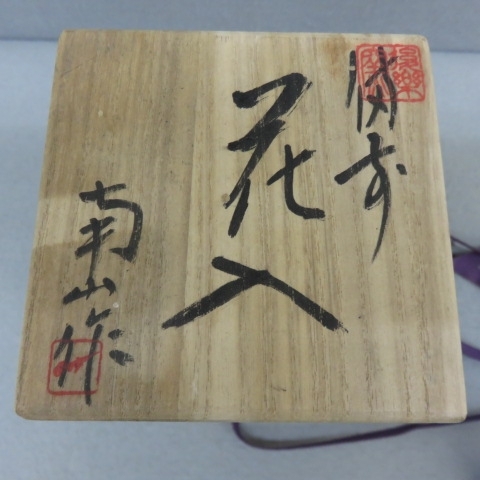 備前
花入
南山作